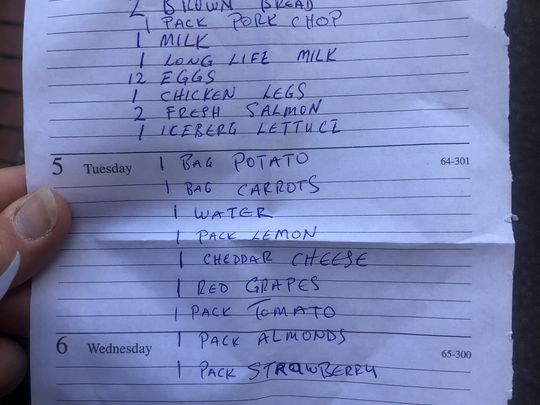 2 BROWN BREAD
1 PACK PORK CHOP
1 MILK
1 LONG LIFE MILK
12 EGGS
1 CHICKEN LEGS
2 FRESH SALMON
1 ICEBERG LETTUCE
5 Tuesday 1 BAG POTATO 64-301
1 BAG CARROTS
1 WATER
1 PACK LEMON
1 CHEDDAR CHEESE
1 RED GRAPES
1 PACK TOMATO
6 Wednesday 1 PACK ALMONDS 65-300
1 PACK STRAWBERRY